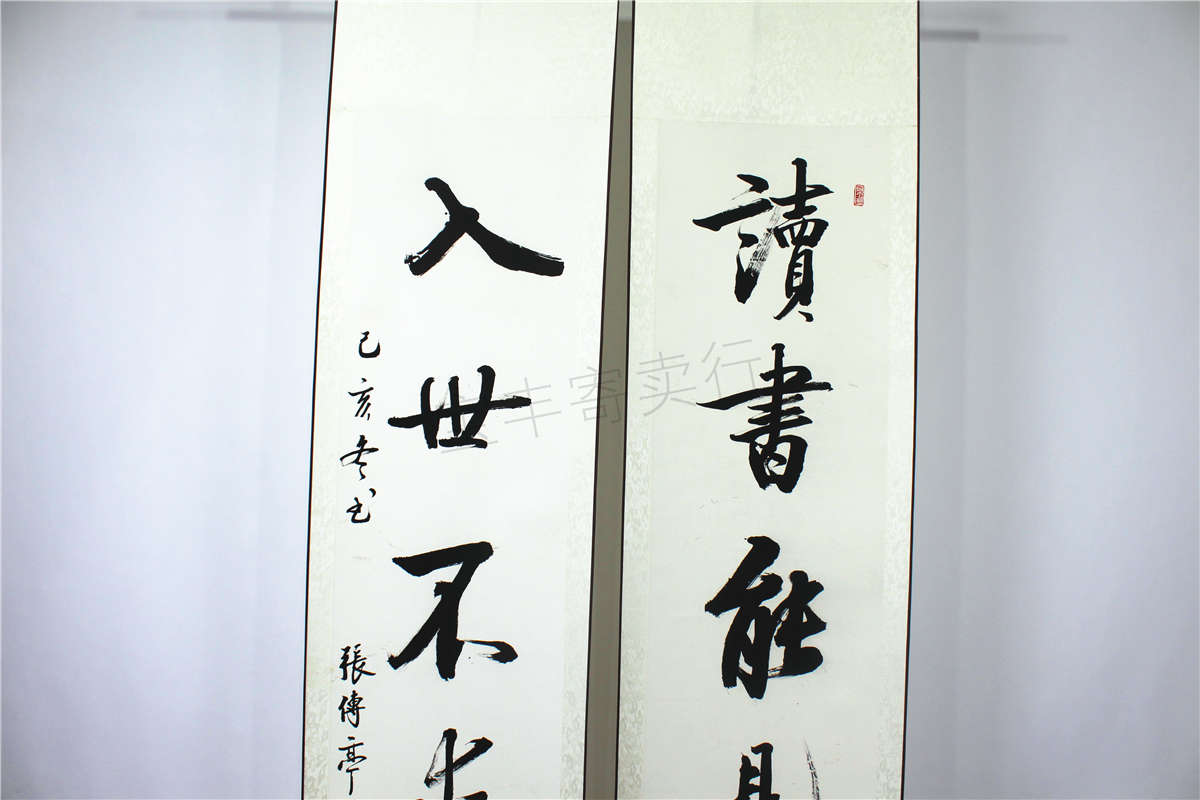 讀書能
入世不
己亥冬书
張傳亭
丰寄卖行